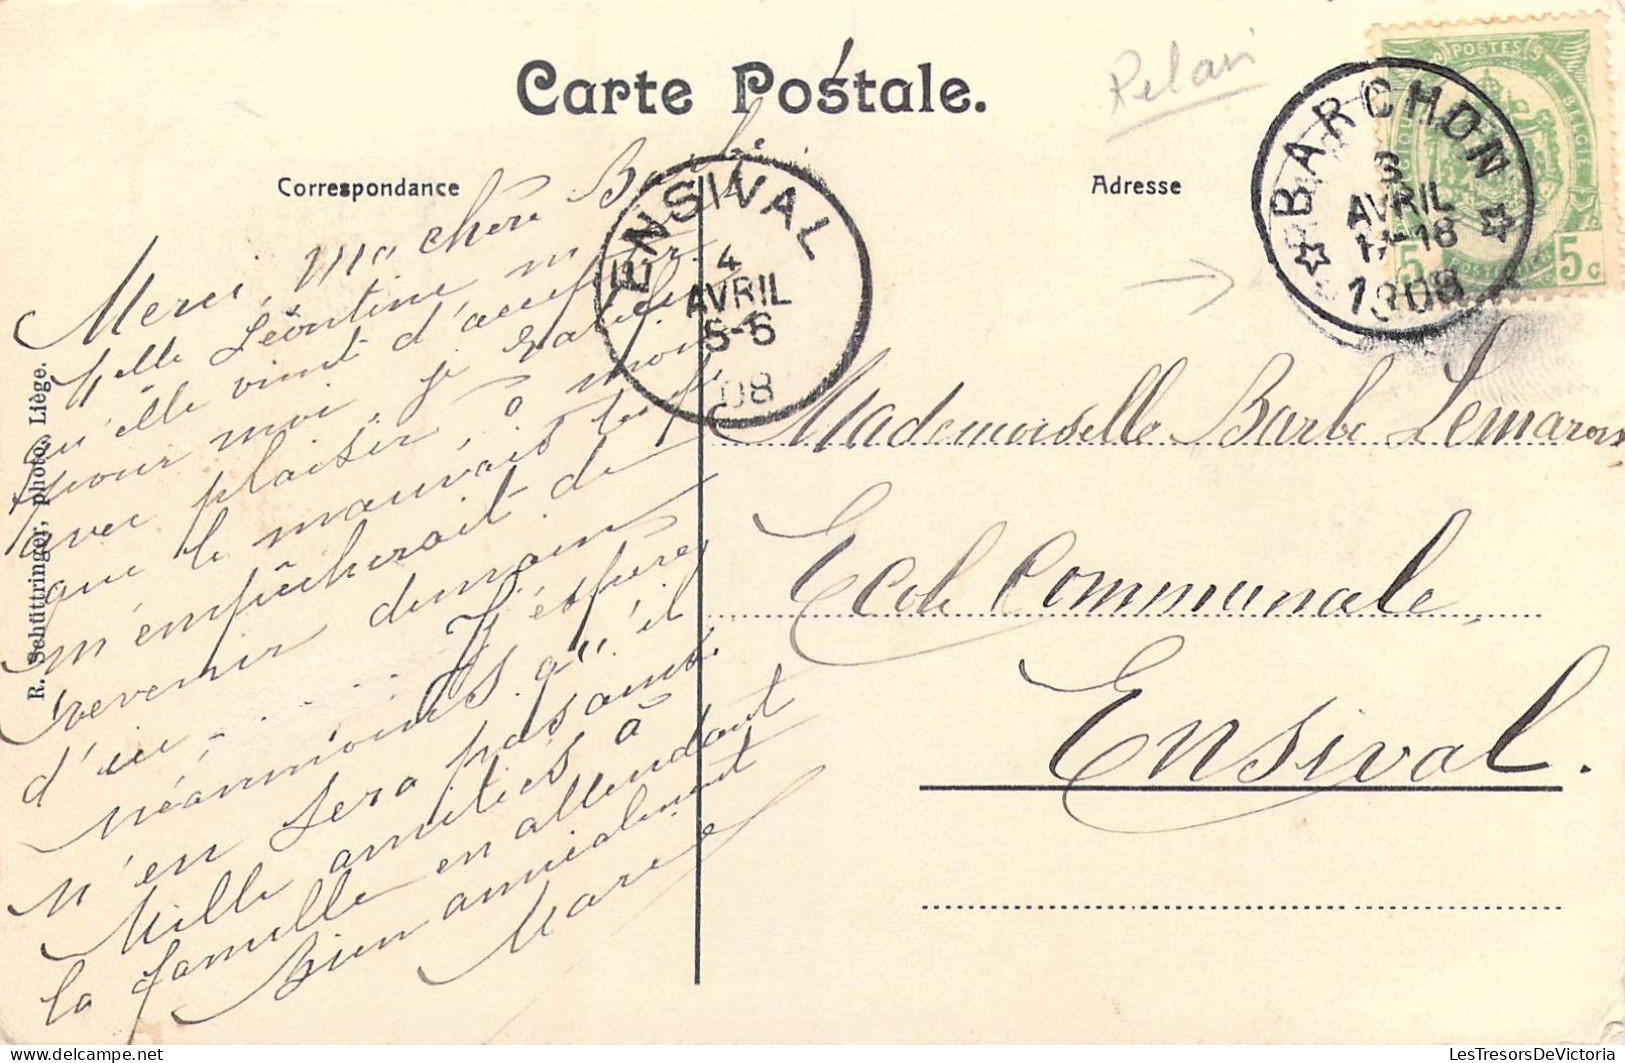 Carte Postale.
Relais
Correspondance
Adresse
POSTES
BELGIQUE
5 5c
BARCHON
3
AVRIL
17-18
1908
ENSIVAL
4
AVRIL
5-6
08
Merci, Ma chère Barbe
Melle Léontine
qu'elle vient d'accepter
pour moi, je
avec plaisir, à moins
que le mauvais temps
m'empêcherait de
revenir demain
d'ici
J'espère
néanmoins qu'il
n'en sera pas ainsi.
Mille amitiés à
la famille en attendant
Bien amicalement
Marie
Mademoiselle Barbe Lemarois
Ecole Communale
Ensival.
R. Schüttringer, photo, Liège.
LesTresorsDeVictoria